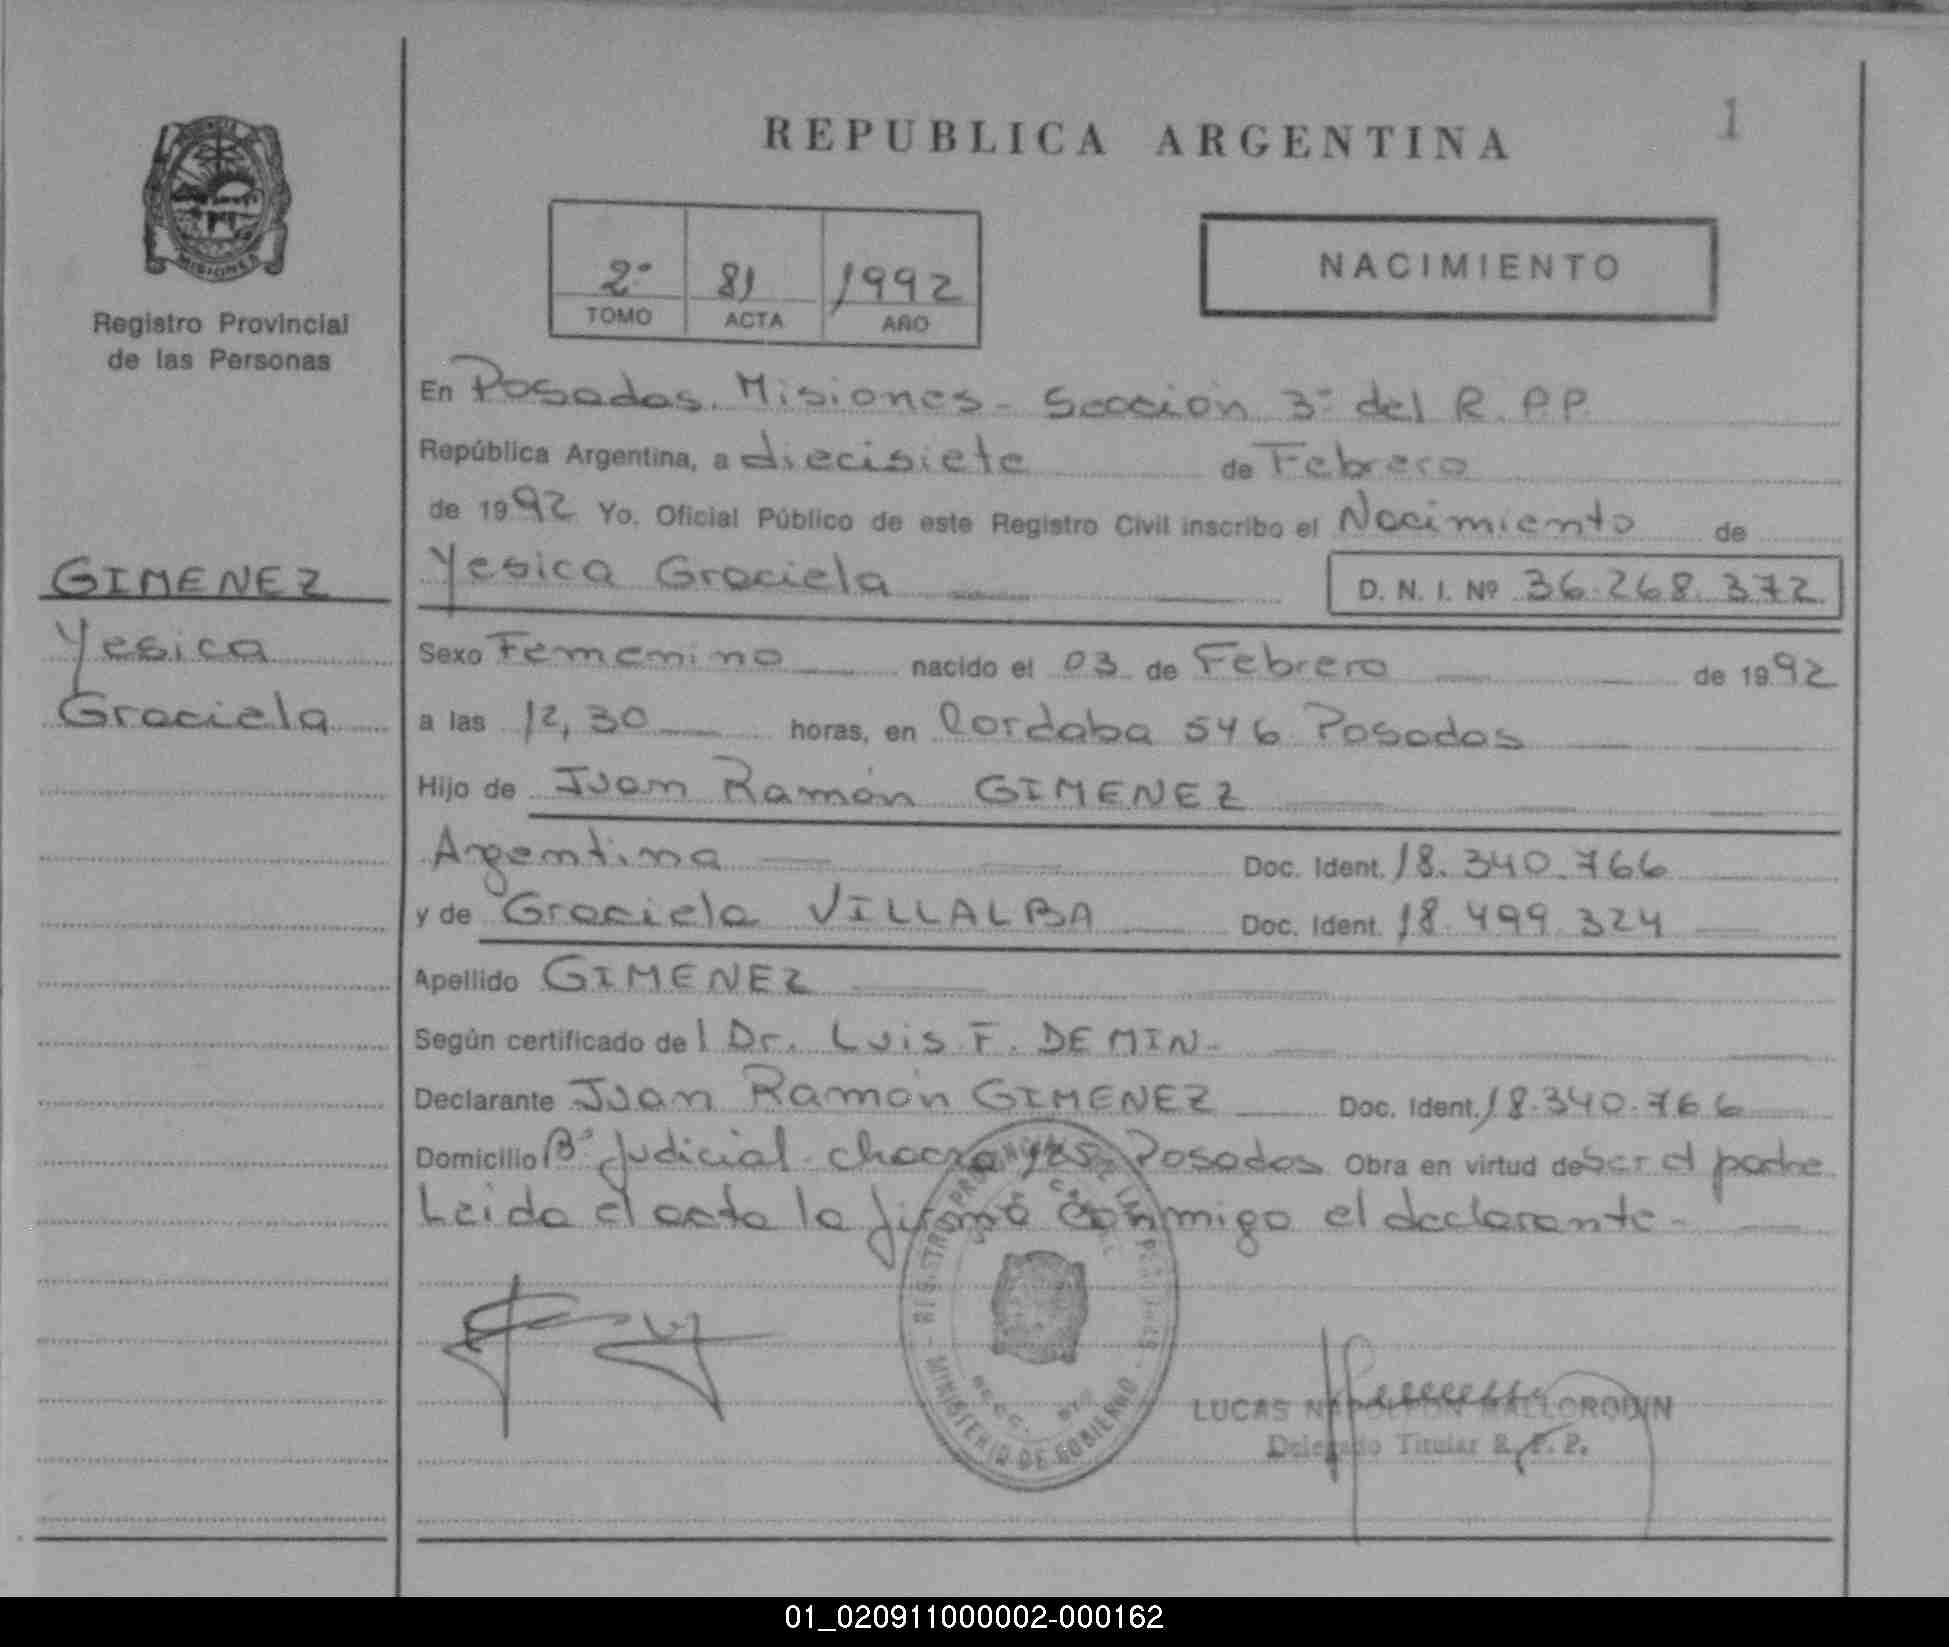 REPUBLICA ARGENTINA
1
MISIONES
Registro Provincial
de las Personas
2º 81 1992
TOMO ACTA AÑO
NACIMIENTO
En Posadas. Misiones - Sección 3º del R.P.P.
República Argentina, a diecisiete de Febrero
de 1992 Yo, Oficial Público de este Registro Civil inscribo el Nacimiento de
GIMENEZ
Yesica
Graciela
Yesica Graciela D. N. I. Nº 36.268.372
Sexo Femenino nacido el 03 de Febrero de 1992
a las 12,30 horas, en Cordoba 546 Posadas
Hijo de Juan Ramón GIMENEZ
Argentina Doc. Ident. 18.340.766
y de Graciela VILLALBA Doc. Ident. 18.499.324
Apellido GIMENEZ
Según certificado del Dr. Luis F. DEMIN.
Declarante Juan Ramón GIMENEZ Doc. Ident. 18.340.766
Domicilio Bº Judicial chacra Posadas Obra en virtud de ser el padre
Leida el acta la firmó conmigo el declarante -
REGISTRO PROVINCIAL DE LAS PERSONAS
MINISTERIO DE GOBIERNO
LUCAS NAPOLEON MALLORQUIN
Delegado Titular R. P. P.
01_020911000002-000162